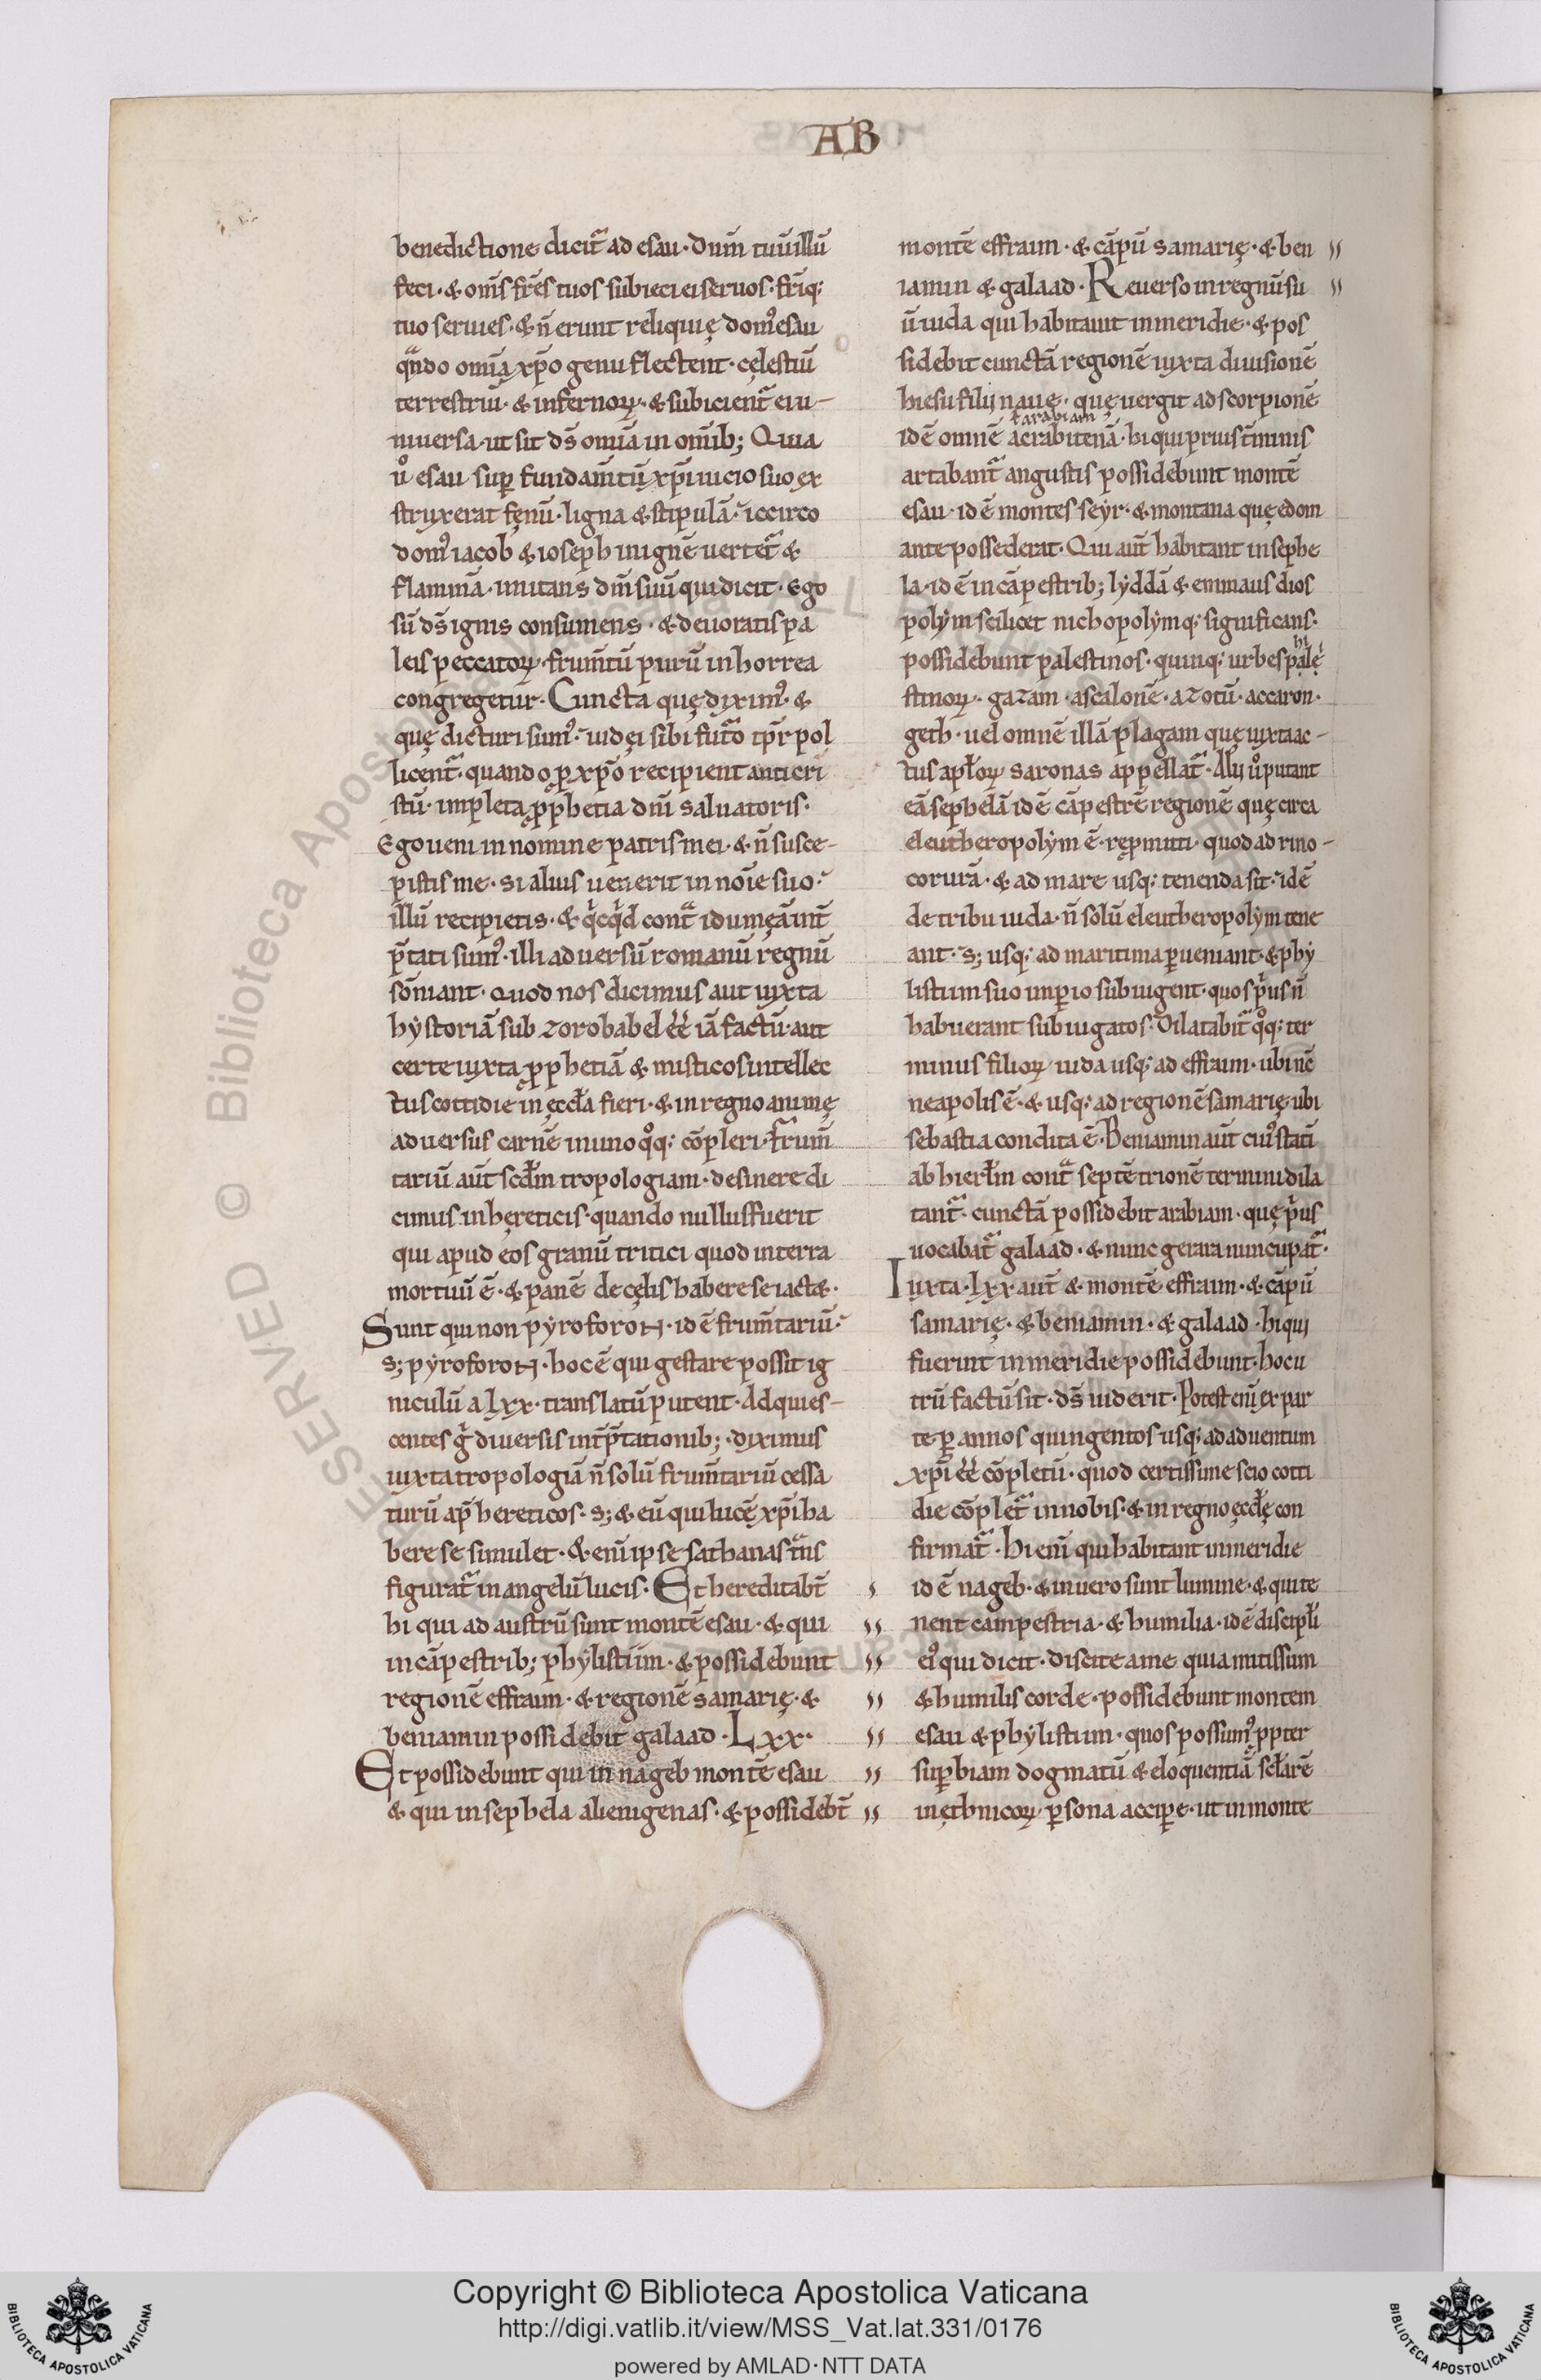 AB
benedictione dicit᷑ ad esau · Dn̄m tuū illū
feci · & om̄s fr̄es tuos subieci ei seruos · fr̄iq;
tuo seruies · & n̄ erunt reliquię domꝰ esau
qn̄do omīa xp̄o genu flectent · cęlestiū
terrestriū · & infernoꝝ · & subicient᷑ ei u-
niuersa · ut sit dꝰ omīa in om̄ib; Quia
ů esau suꝑ fundam̄tū xp̄i uicio suo ex
struxerat fęnū · ligna & stipulā · iccirco
domꝰ iacob & ioseph in ignē uertet᷑ &
flammā · imitans dn̄m suū qui dicit · Ego
sū ds̄ ignis consumens · & deuoratis pa
leis peccatoꝝ · frum̄tū purū in horrea
congregetur · Cuncta quę diximꝰ · &
quę dicturi sumꝰ · iudęi sibi fut᷑o tp̄r pol
licent᷑ · quando ꝓ xp̄o recipient anticri
stū · impleta ꝓphetia dn̄i saluatoris ·
Ego ueni in nomine patris mei · & n̄ susce-
pistis me · si alius uenerit in noīe suo ·
illū recipietis · & qͥcqͥd cont᷑ idumęā int̄
p̄tati sumꝰ · illi aduersū romanū regnū
sōniant · Quod nos dicimus aut iuxta
hystoriā sub zorobabel ēē iā factū · aut
certe iuxta ꝓphetiā & misticos intellec
tus cottidie in ęccła fieri · & in regno animę
aduersus carnē in uno qͦq; cōpleri · Frum̄
tariū aut̄ scd̄m tropologiam · desinere di
cimus in hęreticis · quando nullus fuerit
qui apud eos granū tritici quod in terra
mortuū ē · & panē de cęlis habere se iactæ ·
Sunt qui non pyroforon · id ē frum̄tariū ·
s; pyroforon · hoc ē qui gestare possit ig
niculū a lxx · translatū putent · Adquies-
centes gͥ diuersis int̄p̄tationib; · diximus
iuxta tropologiā n̄ solū frum̄tariū cessa
turū ap̄ hereticos · s; & eū qui lucē xp̄i ha
bere se simulet · & enī ipse sathanas t᷑ns
figurat᷑ in angelū lucis · Et hereditabt̄
hi qui ad austrū sunt montē esau · & qui
in cāpestrib; phylistiim · & possidebunt
regionē effraim · & regionē samarię · &
beniamin possidebit galaad · Lxx ·
Et possidebunt qui in nageb montē esau
& qui in sephela alienigenas · & possidebt̄
montē effraim · & cāpū samarię · & ben
iamin & galaad · Reuerso in regnū su
ū iuda qui habitauit in meridie · & pos
sidebit cunctā regionē iuxta diuisionē
hiesu filij naue · quę uergit ad scorpionē
ł arabiam
id ē omnē acrabitenā · hi qui prius t̄minis
artabant᷑ angustis possidebunt montē
esau · id ē montes seyr · & montana quę edom
ante possederat · Qui aut̄ habitant in sephe
la · id ē in cāpestrib; lyddā & emmaus dios
polym scilicet nichopolymq; significans ·
possidebunt palestinos · quinq; urbes palę
stinoꝝ · gazam · ascalonē · azotū · accaron ·
geth · uel omnē illā plagam quę iuxta ac-
tus apłoꝝ saronas appellat᷑ · Alij ů putant
eā sephelā id ē cāpestrē regionē quę circa
eleutheropolym ē · reꝓmitti · quod ad rino-
corurā · & ad mare usq; tenenda sit · id ē
de tribu iuda · n̄ solū eleutheropolym tene
ant · s; usq; ad maritima ꝑueniant · & phy
listiim suo imꝑio subiugent · quos pͥus n̄
habuerant subiugatos · Dilatabit᷑ qͦq; ter
minus filioꝝ iuda usq; ad effraim · ubi nc̄
neapolis ē · & usq; ad regionē samarię ubi
sebastia condita ē · Beniamin aut̄ cuiꝰ statī
ab hierłm cont᷑ septētrionē termini dila
tant᷑ · cunctā possidebit arabiam · quę pͥus
uocabat᷑ galaad · & nunc gerara nuncupat᷑ ·
Iuxta · lxx aut̄ & montē effraim · & cāpū
samarię · & beniamin · & galaad · hi qui
fuerint in meridie possidebunt · hoc u
trū factū sit · ds̄ uiderit · Potest enī ex par
te ꝑ annos quingentos usq; ad aduentum
xp̄i ēē cōpletū · quod certissime scio cotti
die cōplet᷑ in nobis · & in regno ęccłę con
firmat᷑ · Hi enī qui habitant in meridie
id ē nageb · & in uero sunt lumine · & qui te
nent campestria · & humilia · id ē discipłi
eiꝰ qui dicit · discite a me quia mitis sum
& humilis corde · possidebunt montem
esau & phylistiim · quos possumꝰ ꝓpter
suꝑbiam dogmatū & eloquentiā sclarē
in ęthnicoꝝ ꝑsona accipe · ut in monte
Copyright © Biblioteca Apostolica Vaticana
http://digi.vatlib.it/view/MSS_Vat.lat.331/0176
powered by AMLAD·NTT DATA
BIBLIOTECA APOSTOLICA VATICANA
BIBLIOTECA APOSTOLICA VATICANA